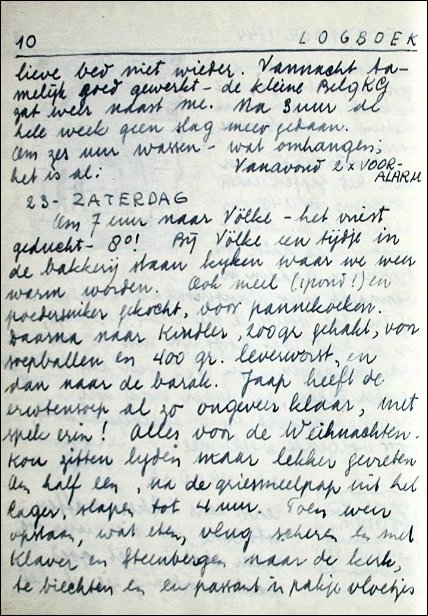 10 LOGBOEK
lieve bed niet wieder. Vannacht ta-
melijk goed gewerkt - de kleine Belg KG
zat weer naast me. Na 3 uur de
hele week geen slag meer gedaan.
Om zes uur wassen - wat omhangen;
het is al: Vanavond 2x VOOR-
ALARM
23 - ZATERDAG
Om 7 uur naar Völke - het vriest
geducht - 8°! Bij Völke een tijdje in
de bakkerij staan kijken waar we weer
warm worden. Ook meel (1 pond!) en
poedersuiker gekocht, voor pannekoeken.
Daarna naar Kindler, 200 gr gehakt, voor
soepballen en 400 gr. leverworst, en
dan naar de barak. Jaap heeft de
erwtensoep al zo ongeveer klaar, met
spek erin! Alles voor de Weihnachten.
Kou zitten lijden maar lekker gevreten
Om half een, na de griesmeelpap uit het
lager, slapen tot 4 uur. Toen weer
opstaan, wat eten, vlug scheren en met
Klaver en Steenbergen naar de kerk,
te biechten en en passant in palije vloetjes